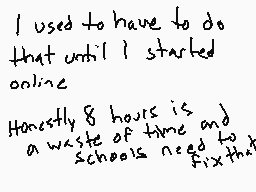 I used to have to do
that until I started
online
Honestly 8 hours is
a waste of time and
schools need to
fix that